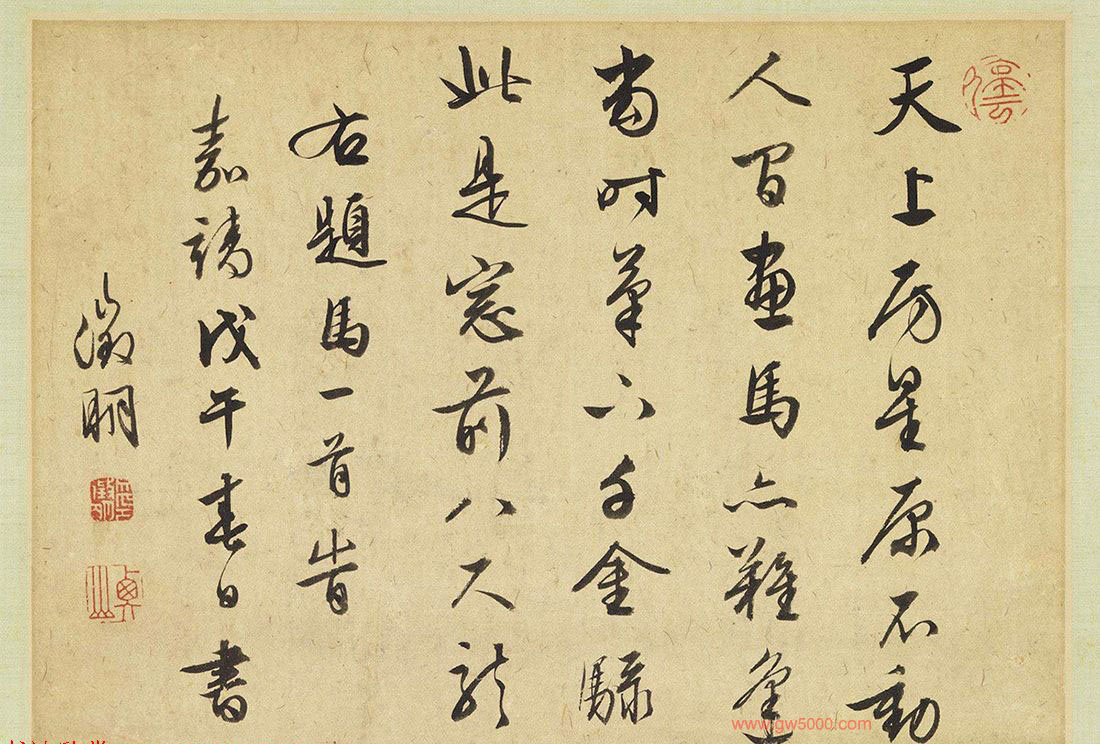 天上房星原不動
人間畫馬亦難逢
當時筆下千金騄
此是窓前八尺龍
右題馬一首旹
嘉靖戊午春日書
徵明
停雲
www.gw5000.com